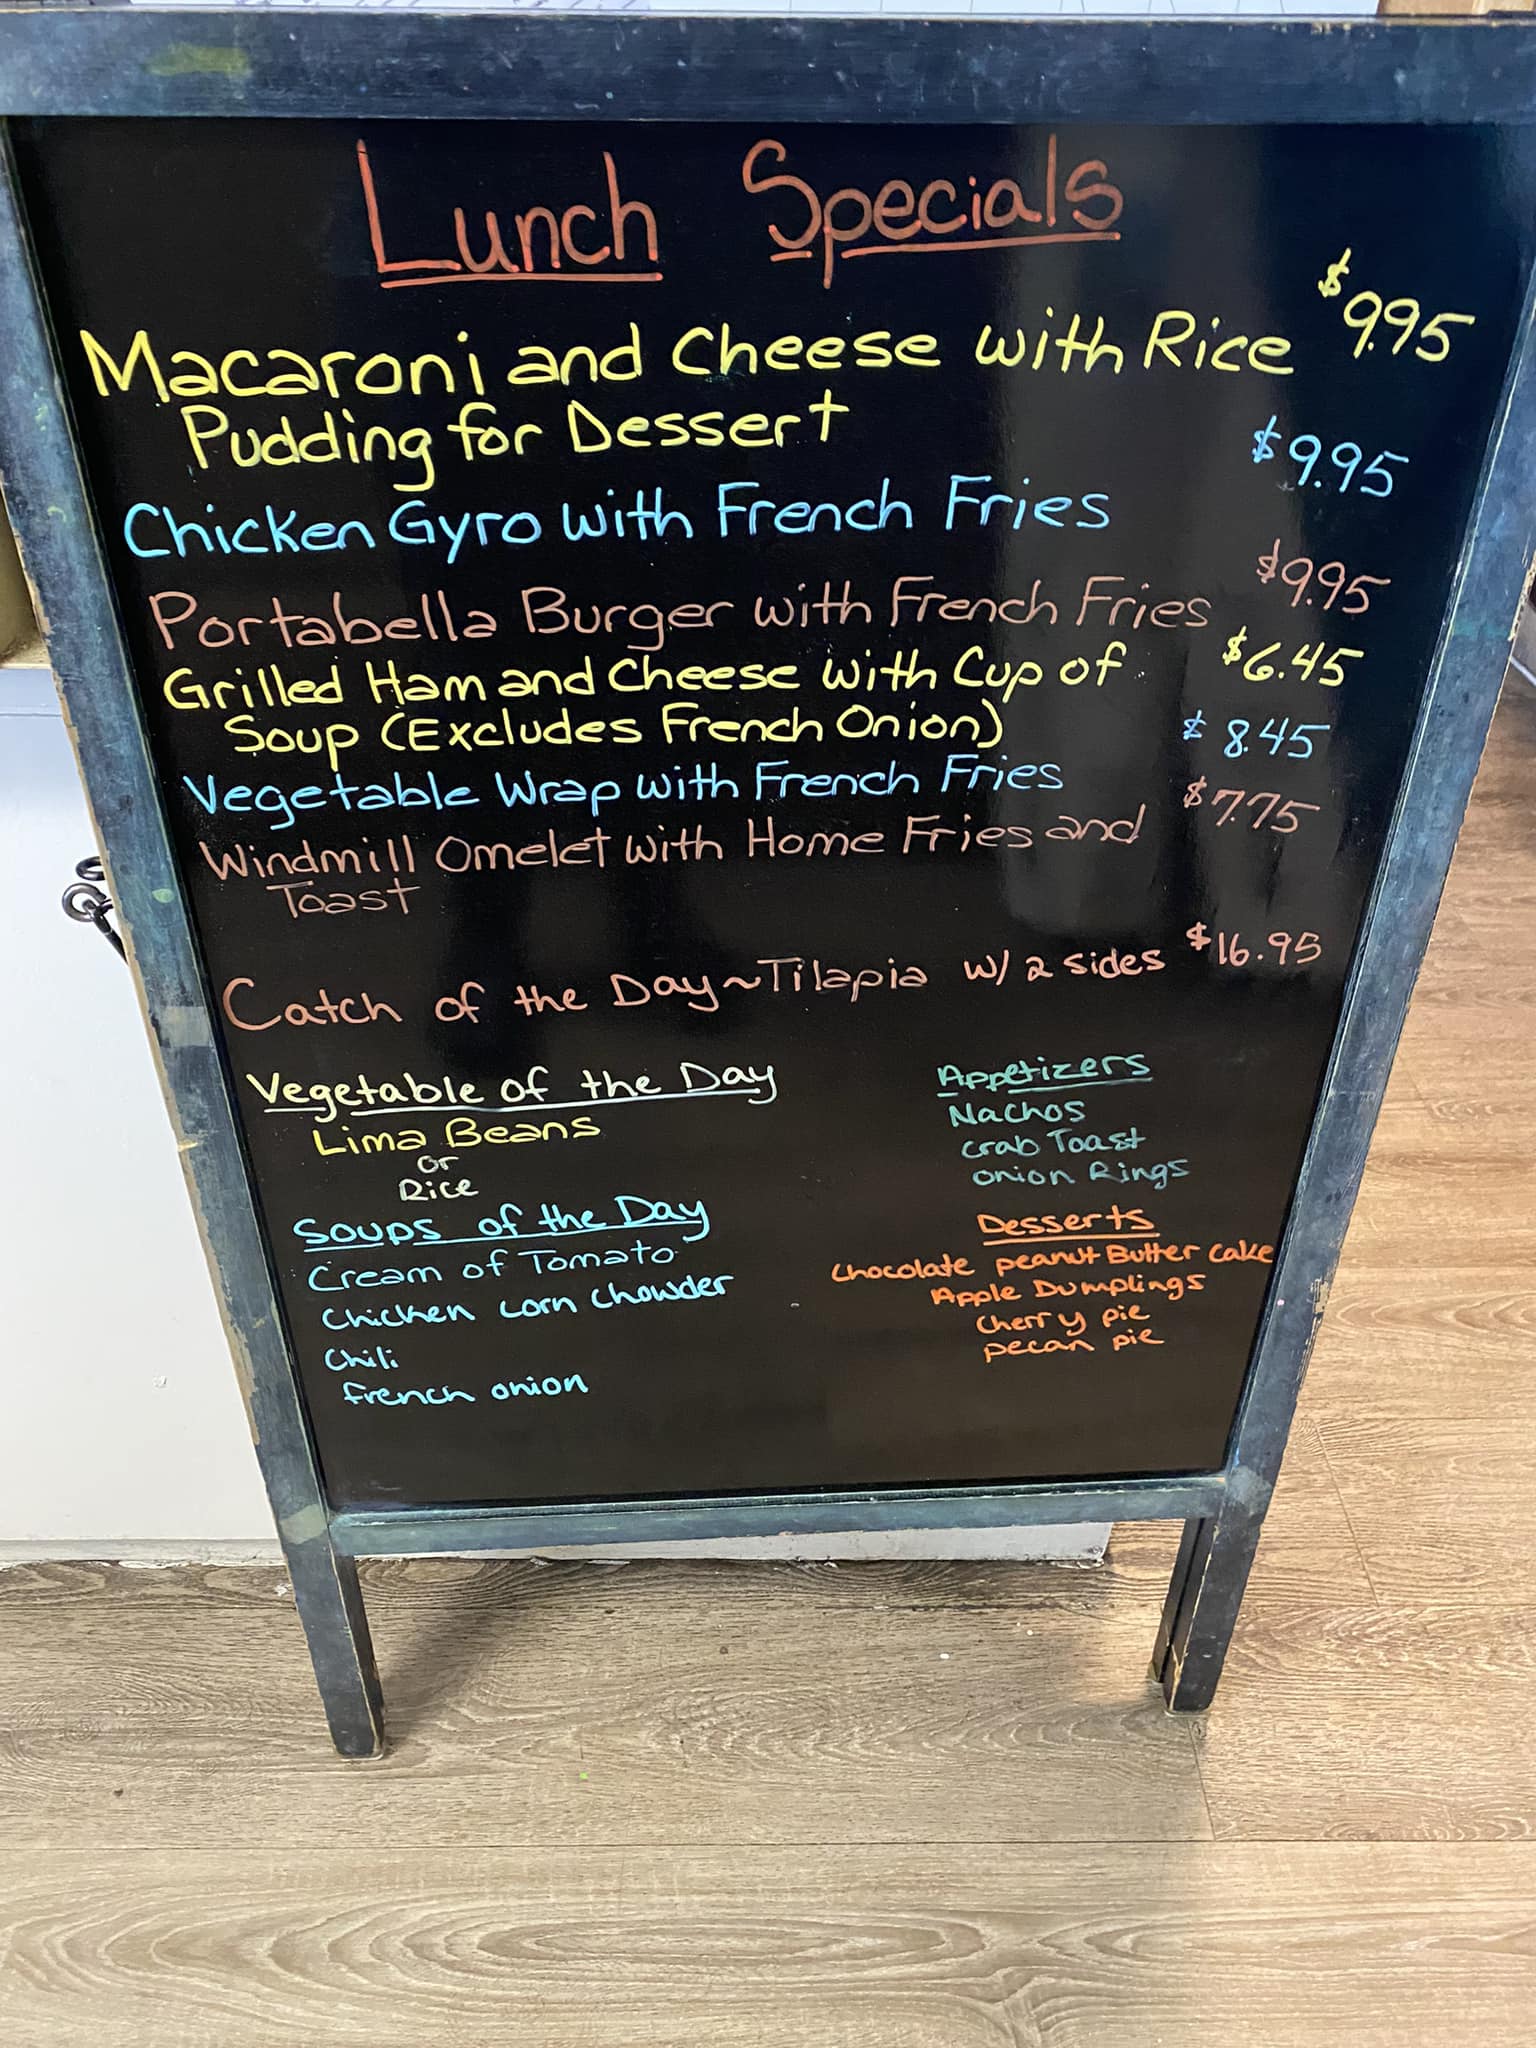 Lunch Specials
Macaroni and Cheese with Rice $9.95
Pudding for Dessert
Chicken Gyro with French Fries $9.95
Portabella Burger with French Fries $9.95
Grilled Ham and Cheese with Cup of $6.45
Soup (Excludes French Onion)
Vegetable Wrap with French Fries $8.45
Windmill Omelet with Home Fries and $7.75
Toast
Catch of the Day~Tilapia w/ 2 sides $16.95
Vegetable of the Day
Lima Beans
or
Rice
Soups of the Day
Cream of Tomato
Chicken corn chowder
Chili
french onion
Appetizers
Nachos
Crab Toast
onion Rings
Desserts
Chocolate peanut Butter cake
Apple Dumplings
Cherry pie
pecan pie